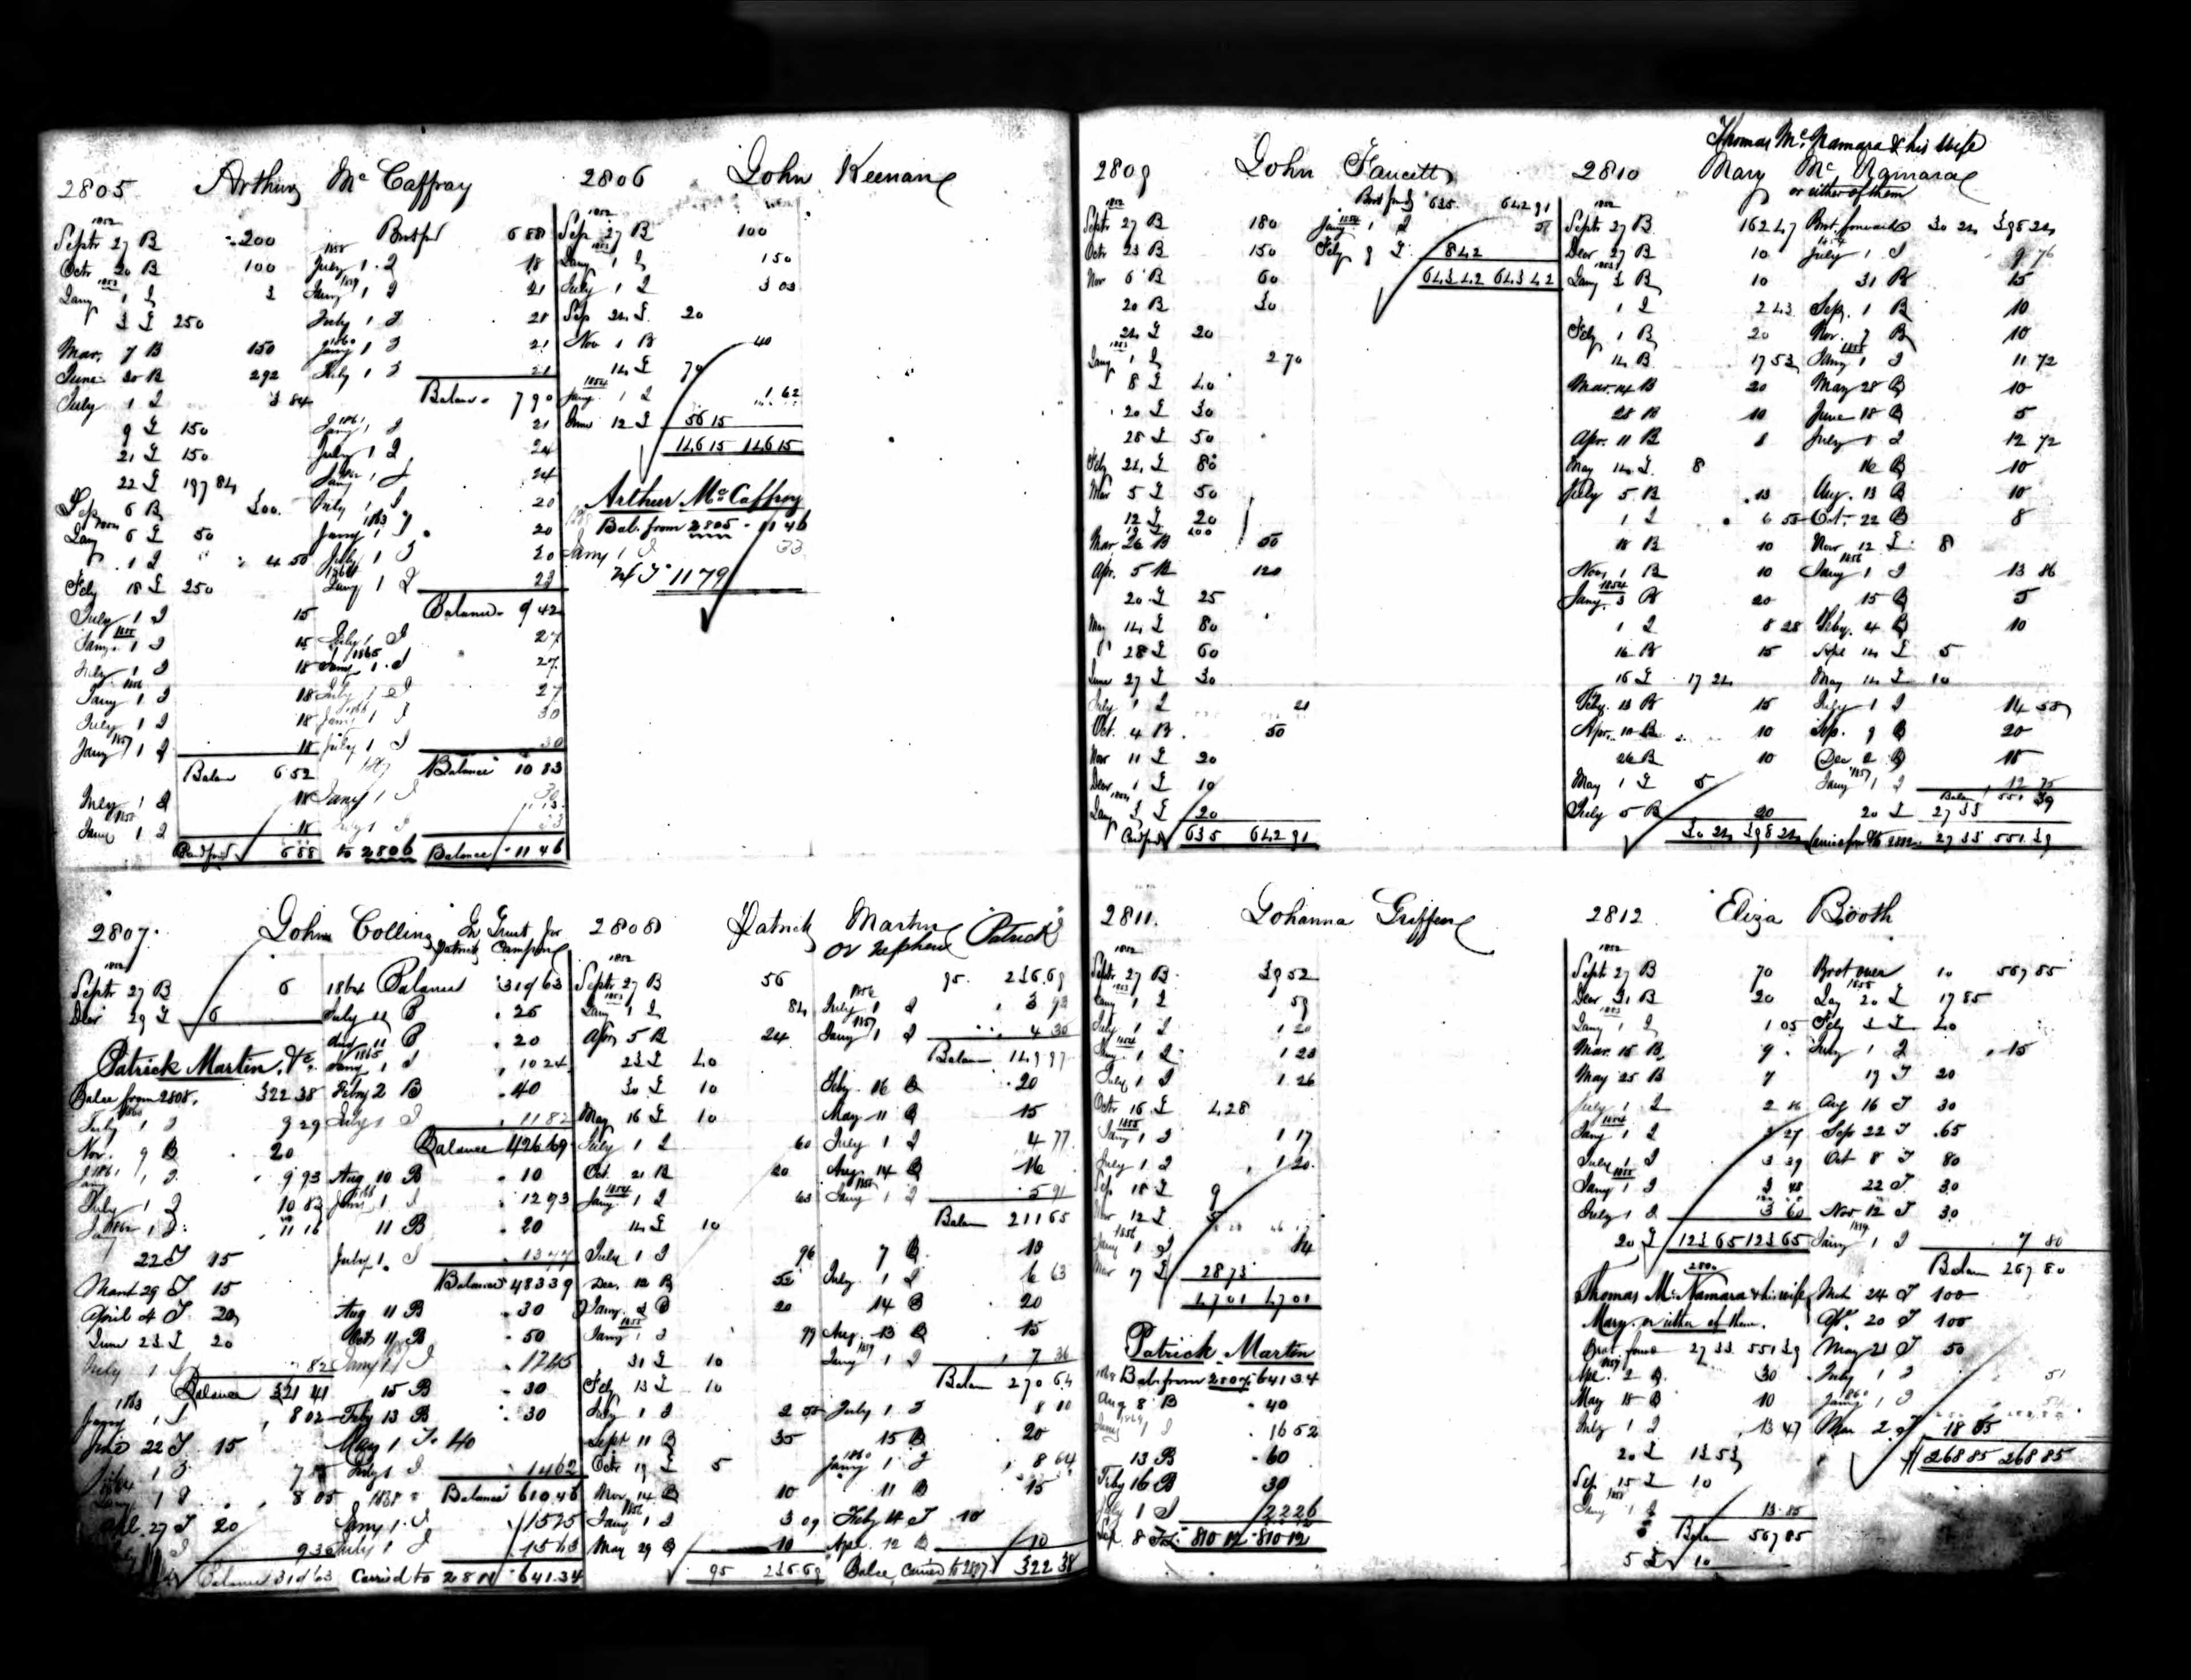 2805 Arthur Mc Caffray
1852
Septr 27 B 200 Brot ford 688
Octr 20 B 100 July 1 I 18
1853
Jany 1 I 3 Jany 1 I 21
3 £ 250 July 1 I 21
Mar. 7 B 150 Jany 1 I 21
June 20 B 292 July 1 I 21
July 1 I 3 84 Balance 790
9 £ 150 Jany 1 I 21
21 £ 150 July 1 I 24
22 £ 197 84 Jany 1 I 24
Sep 6 B 300 July 1 I 20
Jany 6 £ 50 Jany 1 I 20
1 I 4 50 July 1 I 20
Feby 18 £ 250 Jany 1 I 23
July 1 I 15 Balance 942
Jany 1 I 15 July 1 I 27
July 1 I 18 Jany 1 I 27
Jany 1 I 18 July 1 I 27
July 1 I 18 Jany 1 I 30
Jany 1 I 18 July 1 I 30
Balan 652 Balance 10 83
July 1 I 18 Jany 1 I 30
Jany 1 I 18 33
688 to 2806 Balance 11 46
2806 John Keenan
1852
Sep 27 B 100
Jany 1 I 1 50
July 1 I 3 03
Sep 24 £ 20
Nov 1 B 40
14 £ 70
1854
Jany 1 I 1 62
June 12 £ 56 15
146 15 146 15
Arthur Mc Caffray
Bal. from 2805 11 46
Jany 1 I 33
1179
2807 John Collins In Trust for
Patrick
1852
Septr 27 B 6 1864 Balance 319 63
Decr 29 £ 6 July 11 B 25
11 B 20
Patrick Martin, &c. Jany 1 I 10 24
Balce from 2808. 322 38 Feby 2 B 40
July 1 I 9 29 July 1 I 11 82
Nov. 9 B 20 Balance 426 69
Jany 1 I 9 93 Aug 10 B 10
July 1 I 10 83 Jany 1 I 12 93
Jany 1 I 11 16 11 B 20
22 I 15 July 1 I 13 77
March 29 I 15 Balance 483 39
April 4 I 20 Aug 11 B 30
June 23 £ 20 Oct 11 B 50
July 1 I Jany 1 I 17 45
Balance 321 41 15 B 30
1863
Jany 1 I 8 02 Feby 13 B 30
June 22 I 15 May 1 I 40
July 1 I 14 62
Jany 1 I 8 05 Balance 610 46
Apl 27 I 20 Jany 1 I 15 25
9 36 July 1 I 15 63
Balance 319 63 Carried to 2811 641.34
2808 Patrick Martin
or nephew Patrick
1852
Septr 27 B 56 95 236.69
1853
Jany 1 I 84 July 1 I 3 93
Apr 5 B 24 Jany 1 I 4 35
23 £ 40 Balan 149 97
30 £ 10 Feby 16 B 20
May 16 £ 10 May 11 B 15
July 1 I 60 July 1 I 4 77
Oct. 21 B 20 Aug. 14 B 16
1854
Jany 1 I 63 Jany 1 I 5 91
14 £ 10 Balan 211 65
July 1 I 96 7 B 10
Dec. 12 B 52 July 1 I 6 63
Jany 2 B 20 14 B 20
1855
Jany 1 I 99 Aug. 13 B 15
31 £ 10 Jany 1 I 7 36
Feby 13 £ 10 Balan 270 64
July 1 I 2 55 July 1 I 8 10
Sept 11 B 35 15 B 20
Octr 19 £ 5 Jany 1 I 8 64
Nov. 14 B 10 11 B 15
1856
Jany 1 I 3 09 Feby 14 I 10
May 29 B 10 Apl. 12 B 10
95 236.69 Balce Carried to 2807 322 38
2809 John Faucett
Brot ford 635. 642 91
1852
Septr 27 B 180 Jany 1 I 51
Octr 23 B 150 Feby 9 £ 8 42
Nov 6 B 60 643 42 643 42
20 B 30
24 £ 20
1853
Jany 1 I 2 70
8 £ 40
20 £ 30
25 £ 50
Feby 24 £ 80
Mar 5 £ 50
12 £ 20
19 £ 200
Mar 26 B 50
Apr. 5 B 120
20 £ 25
May 14 £ 80
28 £ 60
June 27 £ 30
July 1 I 21
Oct. 4 B 50
Nov 11 £ 20
Decr 1 £ 10
Jany 3 £ 20
Card ford 635 642 91
2810 Thomas Mc Namara & his wife
Mary Mc Namara
or either of them
1852
Septr 27 B 162 47 Brot forward 30 24 398 24
Decr 27 B 10 July 1 I 9 76
1853
Jany 3 B 10 31 B 15
1 I 2 43 Sep. 1 B 10
Feby 1 B 20 Nov. 7 B 10
14 B 17 53 Jany 1 I 11 72
Mar 14 B 20 May 28 B 10
28 B 10 June 18 B 5
Apr. 11 B 8 July 1 I 12 72
May 14 £ 8 16 B 10
July 5 B 13 Aug. 13 B 10
1 I 6 55 Oct. 22 B 8
18 B 10 Nov 12 £ 8
Nov. 1 B 10 Jany 1 I 13 86
1854
Jany. 3 B 20 15 B 5
1 I 8 28 Feby. 4 B 10
16 B 15 Apl 14 £ 5
16 £ 17 24 May 14 £ 10
Feby. 13 B 15 July 1 I 14 58
Apr. 10 B 10 Sep. 9 B 20
26 B 10 Dec 2 B 15
May 1 £ 5 Jany 1 I 12 75
July 5 B 20 Balan 551 39
20 £ 27 33
30 24 398 24 27 33 551 39
2811. Johanna Griffen
1852
Septr 27 B 39 52
Jany 1 I 59
July 1 I 1 20
1854
Jany 1 I 1 23
July 1 I 1 26
Octr 16 £ 4 28
1855
Jany 1 I 1 17
July 1 I 1 20
Sep. 18 £ 9
Nov 12 £ 5
Jany 1 I 84
Mar 17 £ 28 73
47 01 47 01
Patrick Martin
Bal from 2807 641 34
Aug 8 B 40
Jany 1 I 16 52
13 B 60
Feby 16 B 30
July 1 I 22 26
Sep. 8 810 12 810 12
2812 Eliza Booth
1852
Septr 27 B 70 Brot over 10 567 85
Decr 31 B 20 20 £ 17 85
1853
Jany 1 I 1 05 Feby 3 £ 40
Mar. 15 B 9 July 1 I 15
May 25 B 7 19 I 20
July 1 I 2 16 Aug 16 I 30
1854
Jany 1 I 3 27 Sep 22 I 65
July 1 I 3 39 Oct 8 I 80
1855
Jany 1 I 3 48 22 I 30
July 1 I 3 60 Nov 12 I 30
20 £ 123 65 123 65 Jany 1 I 7 80
Balan 267 80
Thomas Mc Namara & his wife Mch 24 I 100
Mary or either of them. Ap. 20 I 100
Brot ford 27 33 551 39 May 21 I 50
Apr. 2 B 30 July 1 I 51
May 18 B 10 Jany 1 I 54
July 1 I 13 47 Mar 2 I 18 85
20 £ 13 53 268 85 268 85
Sep. 15 £ 10
Jany 1 I 13 85
Balan 567 85
5 £ 10